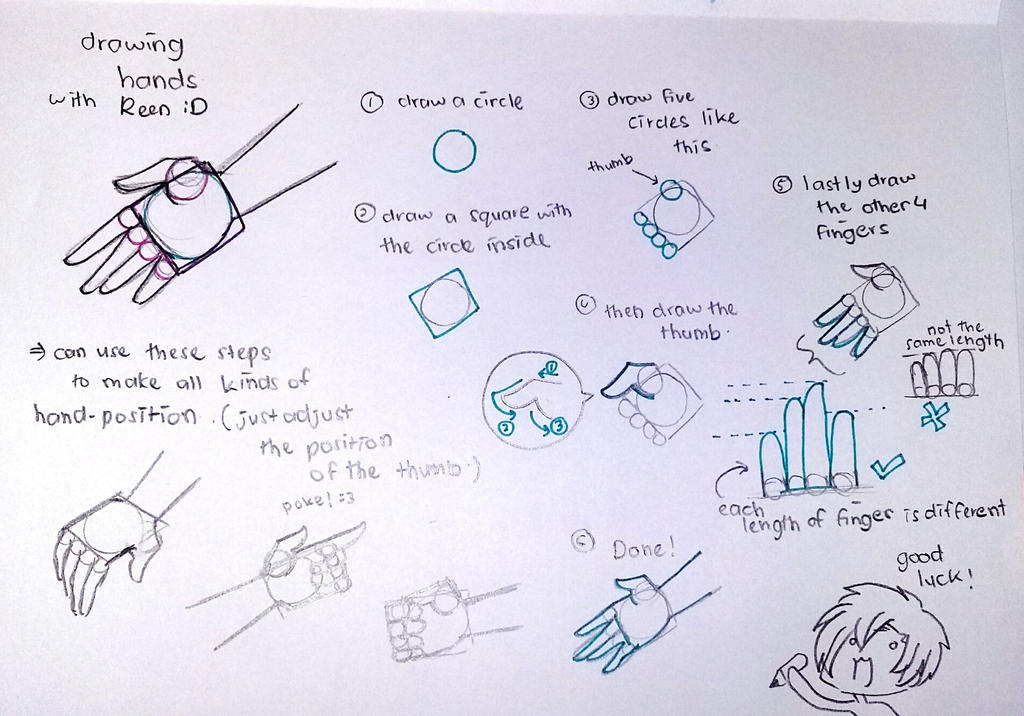 drawing
hands
with Reen :D
① draw a circle
② draw a square with
the circle inside
③ draw five
circles like
this
thumb
④ then draw the
thumb.
①
②
③
⑤ lastly draw
the other 4
fingers
not the
same length
each
length of finger is different
⑥ Done!
⇒ can use these steps
to make all kinds of
hand-position. (just adjust
the position
of the thumb.)
poke! :3
good
luck!